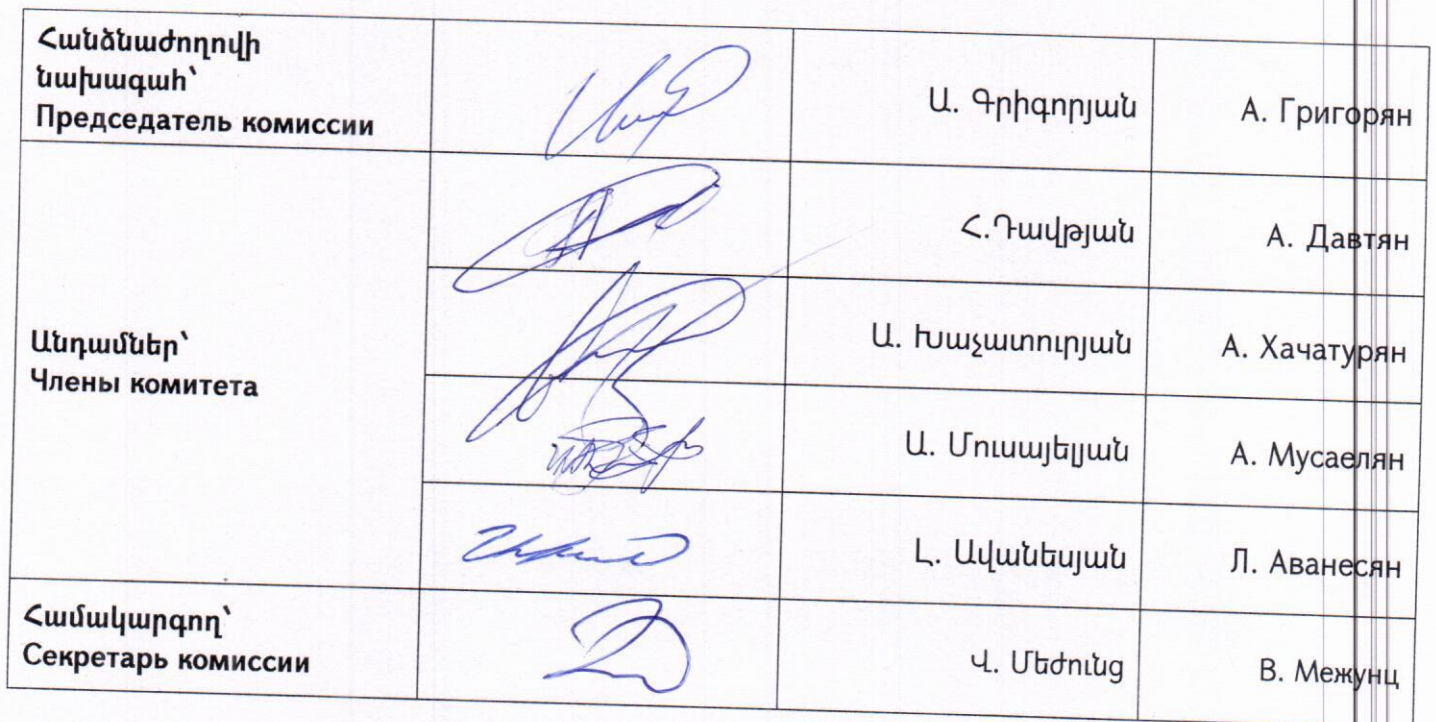 Հանձնաժողովի
նախագահ՝
Председатель комиссии
Ա. Գրիգորյան
А. Григорян
Անդամներ՝
Члены комитета
Հ.Դավթյան
А. Давтян
Ա. Խաչատուրյան
А. Хачатурян
Ա. Մուսայելյան
А. Мусаелян
Լ. Ավանեսյան
Л. Аванесян
Համակարգող՝
Секретарь комиссии
Վ. Մեժունց
В. Межунц